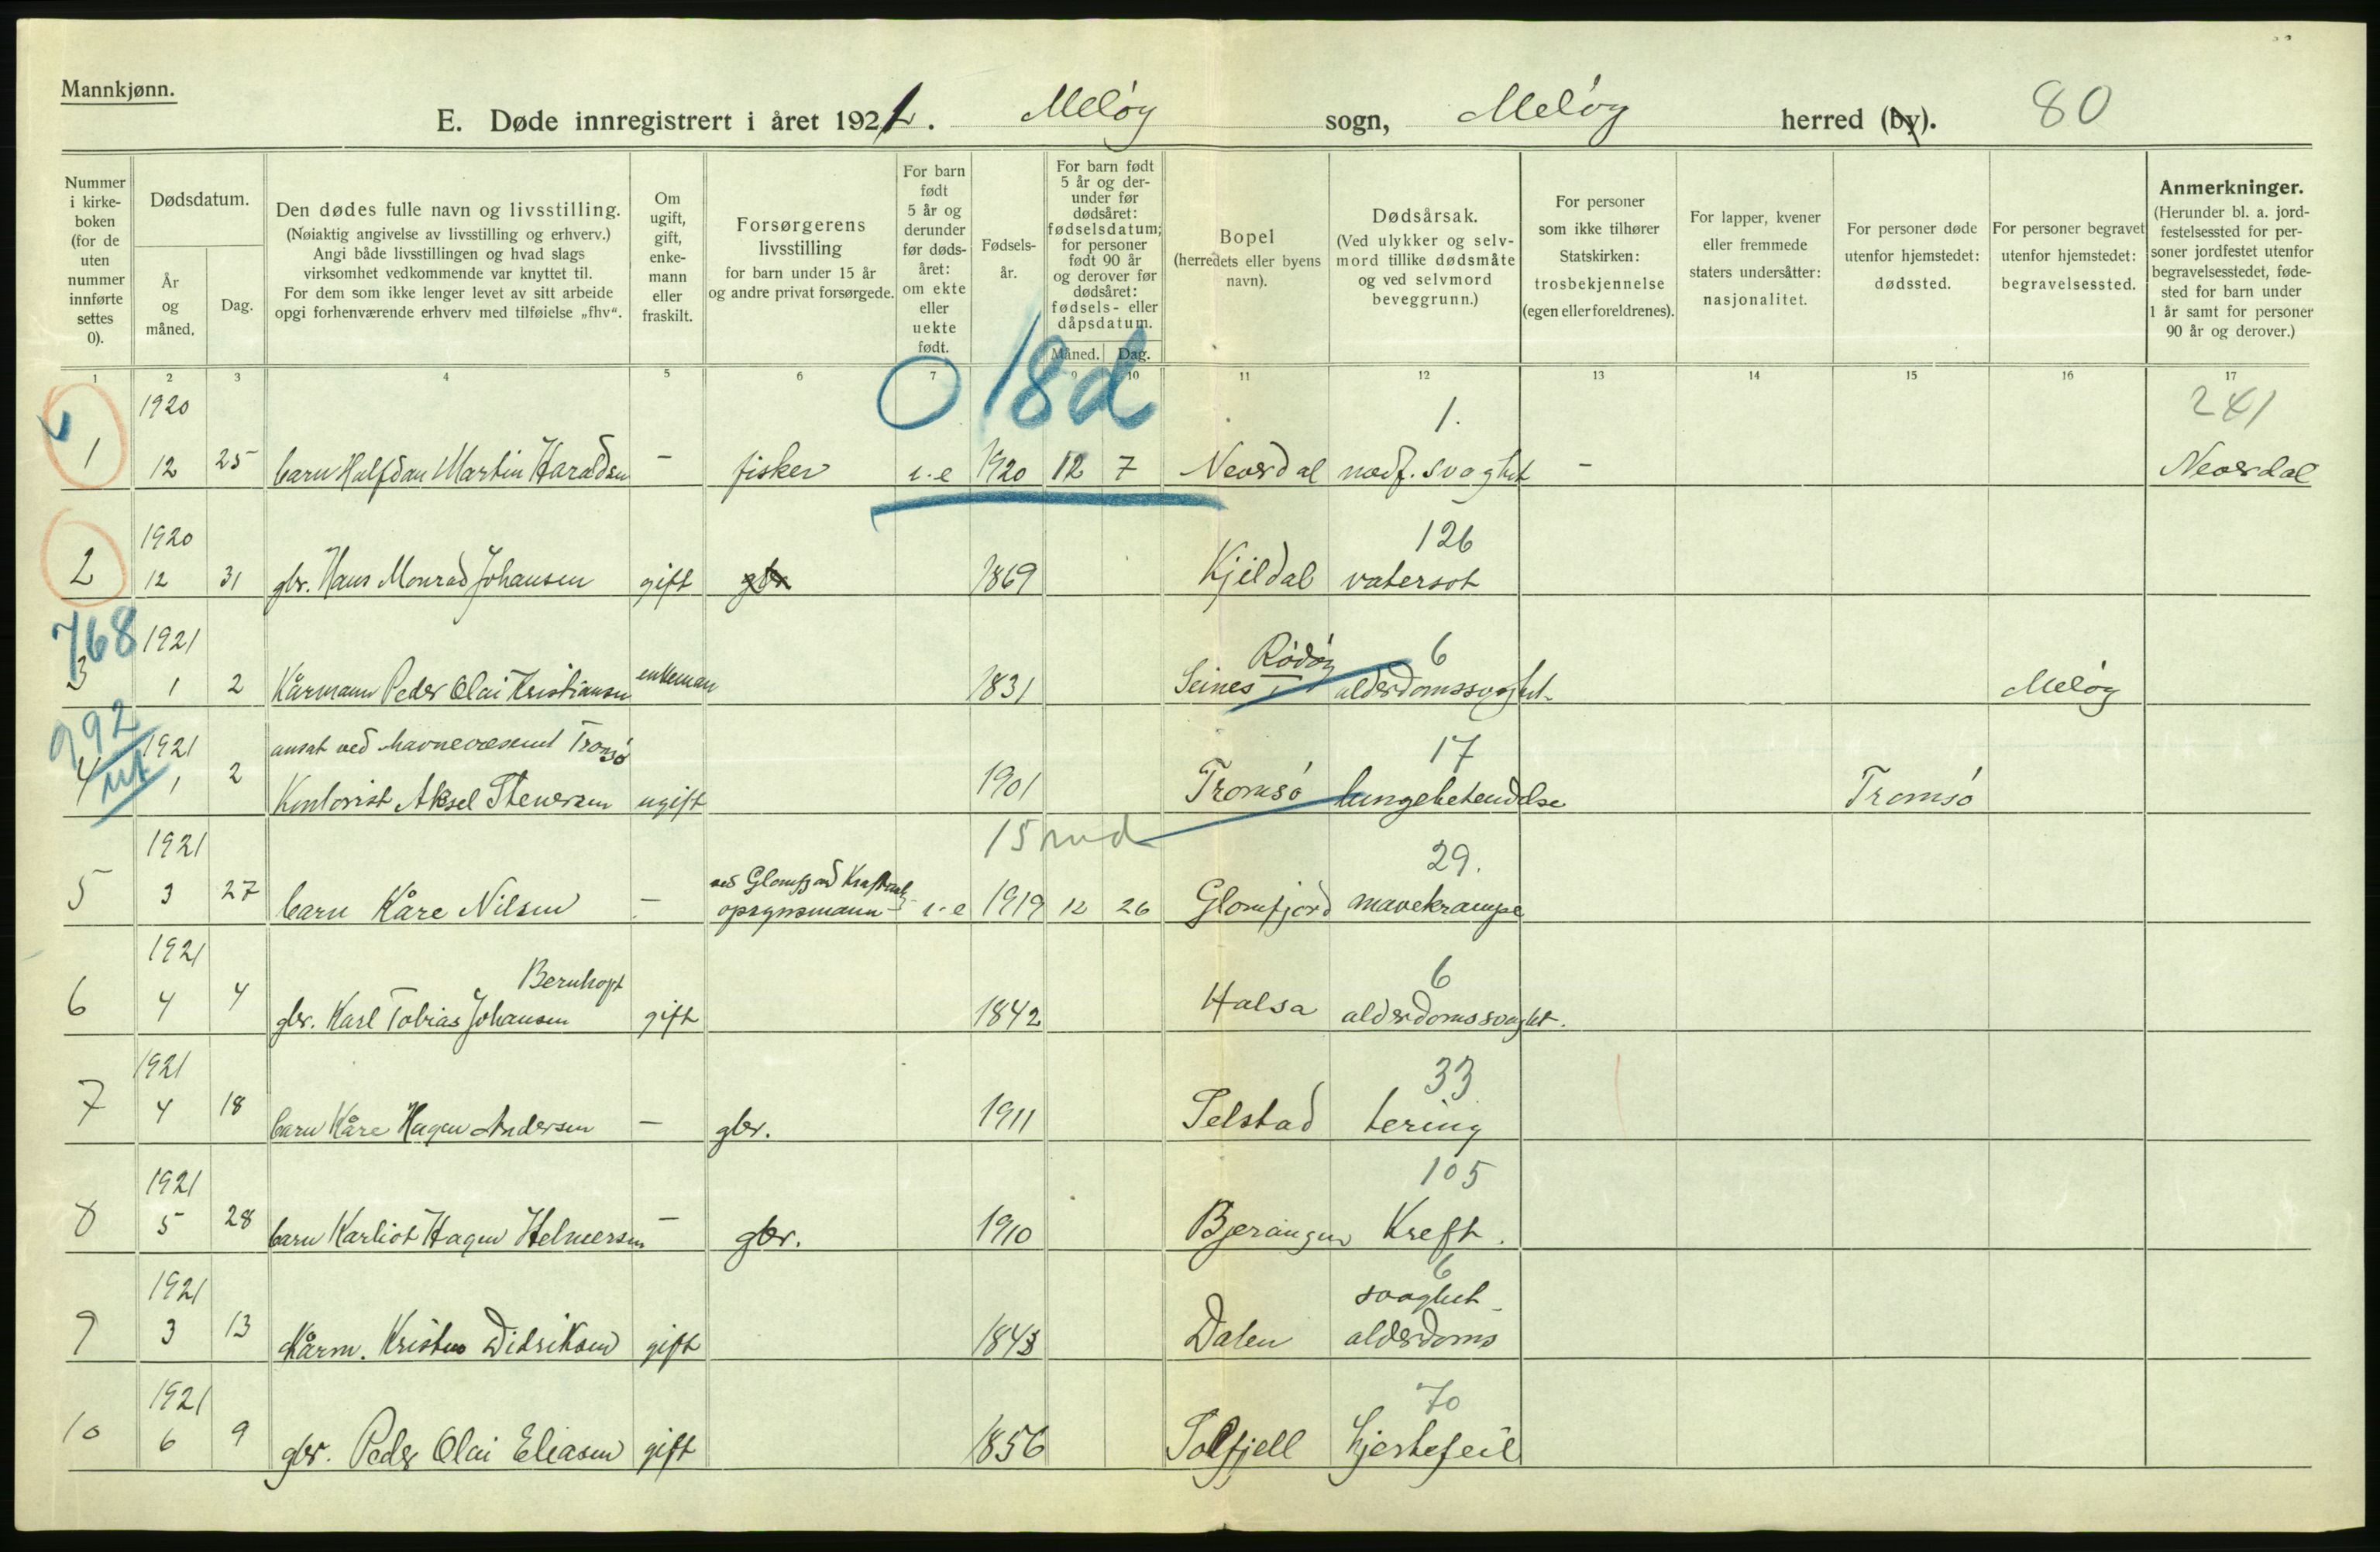 Mannkjønn.
E. Døde innregistrert i året 1921. Meløy sogn, Meløy herred (by). 80
Nummer i kirke-boken (for de uten nummer innførte settes 0).
Dødsdatum.
År og måned.
Dag.
Den dødes fulle navn og livsstilling.
(Nøiaktig angivelse av livsstilling og erhverv.)
Angi både livsstillingen og hvad slags
virksomhet vedkommende var knyttet til.
For dem som ikke lenger levet av sitt arbeide
opgi forhenværende erhverv med tilføielse „fhv“.
Om ugift, gift, enke-mann eller fraskilt.
Forsørgerens livsstilling
for barn under 15 år
og andre privat forsørgede.
For barn født 5 år og derunder før døds-året: om ekte eller uekte født.
Fødsels-år.
For barn født 5 år og der-under før dødsåret: fødselsdatum; for personer født 90 år og derover før dødsåret: fødsels- eller dåpsdatum.
Måned. Dag.
Bopel
(herredets eller byens navn).
Dødsårsak.
(Ved ulykker og selv-mord tillike dødsmåte og ved selvmord beveggrunn.)
For personer som ikke tilhører Statskirken: trosbekjennelse (egen eller foreldrenes).
For lapper, kvener eller fremmede staters undersåtter: nasjonalitet.
For personer døde utenfor hjemstedet: dødssted.
For personer begravet utenfor hjemstedet: begravelsessted.
Anmerkninger.
(Herunder bl. a. jord-festelsessted for per-soner jordfestet utenfor begravelsesstedet, føde-sted for barn under 1 år samt for personer 90 år og derover.)
1 2 3 4 5 6 7 8 9 10 11 12 13 14 15 16 17
1920 0 18d 1. 241
1 12 25 barn Halfdan Martin Haraldsen – fisker u.e 1920 12 7 Neverdal medf. svaghet – Neverdal
1920 126
2 12 31 gbr. Hans Monrad Johansen gift gbr 1869 Kjeldal vatersot
768 1921 Rødøy 6
3 1 2 Kårmann Peder Olai Kristiansen enkeman 1831 Seines i alderdomssvaghet. Meløy
992 1921 ansat ved havnevæsenet Tromsø 17
4 ut 1 2 Kontorist Aksel Stenersen ugift 1901 Tromsø lungebetendelse Tromsø
1921 15 md 29.
ved Glomfjord Kraftanlg
5 3 27 barn Kåre Nilsen – opsynsmann u.e 1919 12 26 Glomfjord mavekrampe
1921 Bernhoft 6
6 4 4 gbr. Karl Tobias Johansen gift 1842 Halsa alderdomssvaghet.
1921 33
7 4 18 barn Kåre Hagen Andersen – gbr. 1911 Selstad tering
1921 105
8 5 28 barn Karliot Hagen Helmersen – gbr. 1910 Bjerangen Kreft.
1921 6
svaghet
9 3 13 Kårm. Kristen Didriksen gift 1843 Dalen alderdoms
1921 70
10 6 9 gbr. Peder Olai Eliasen gift 1856 Solfjell hjertefeil